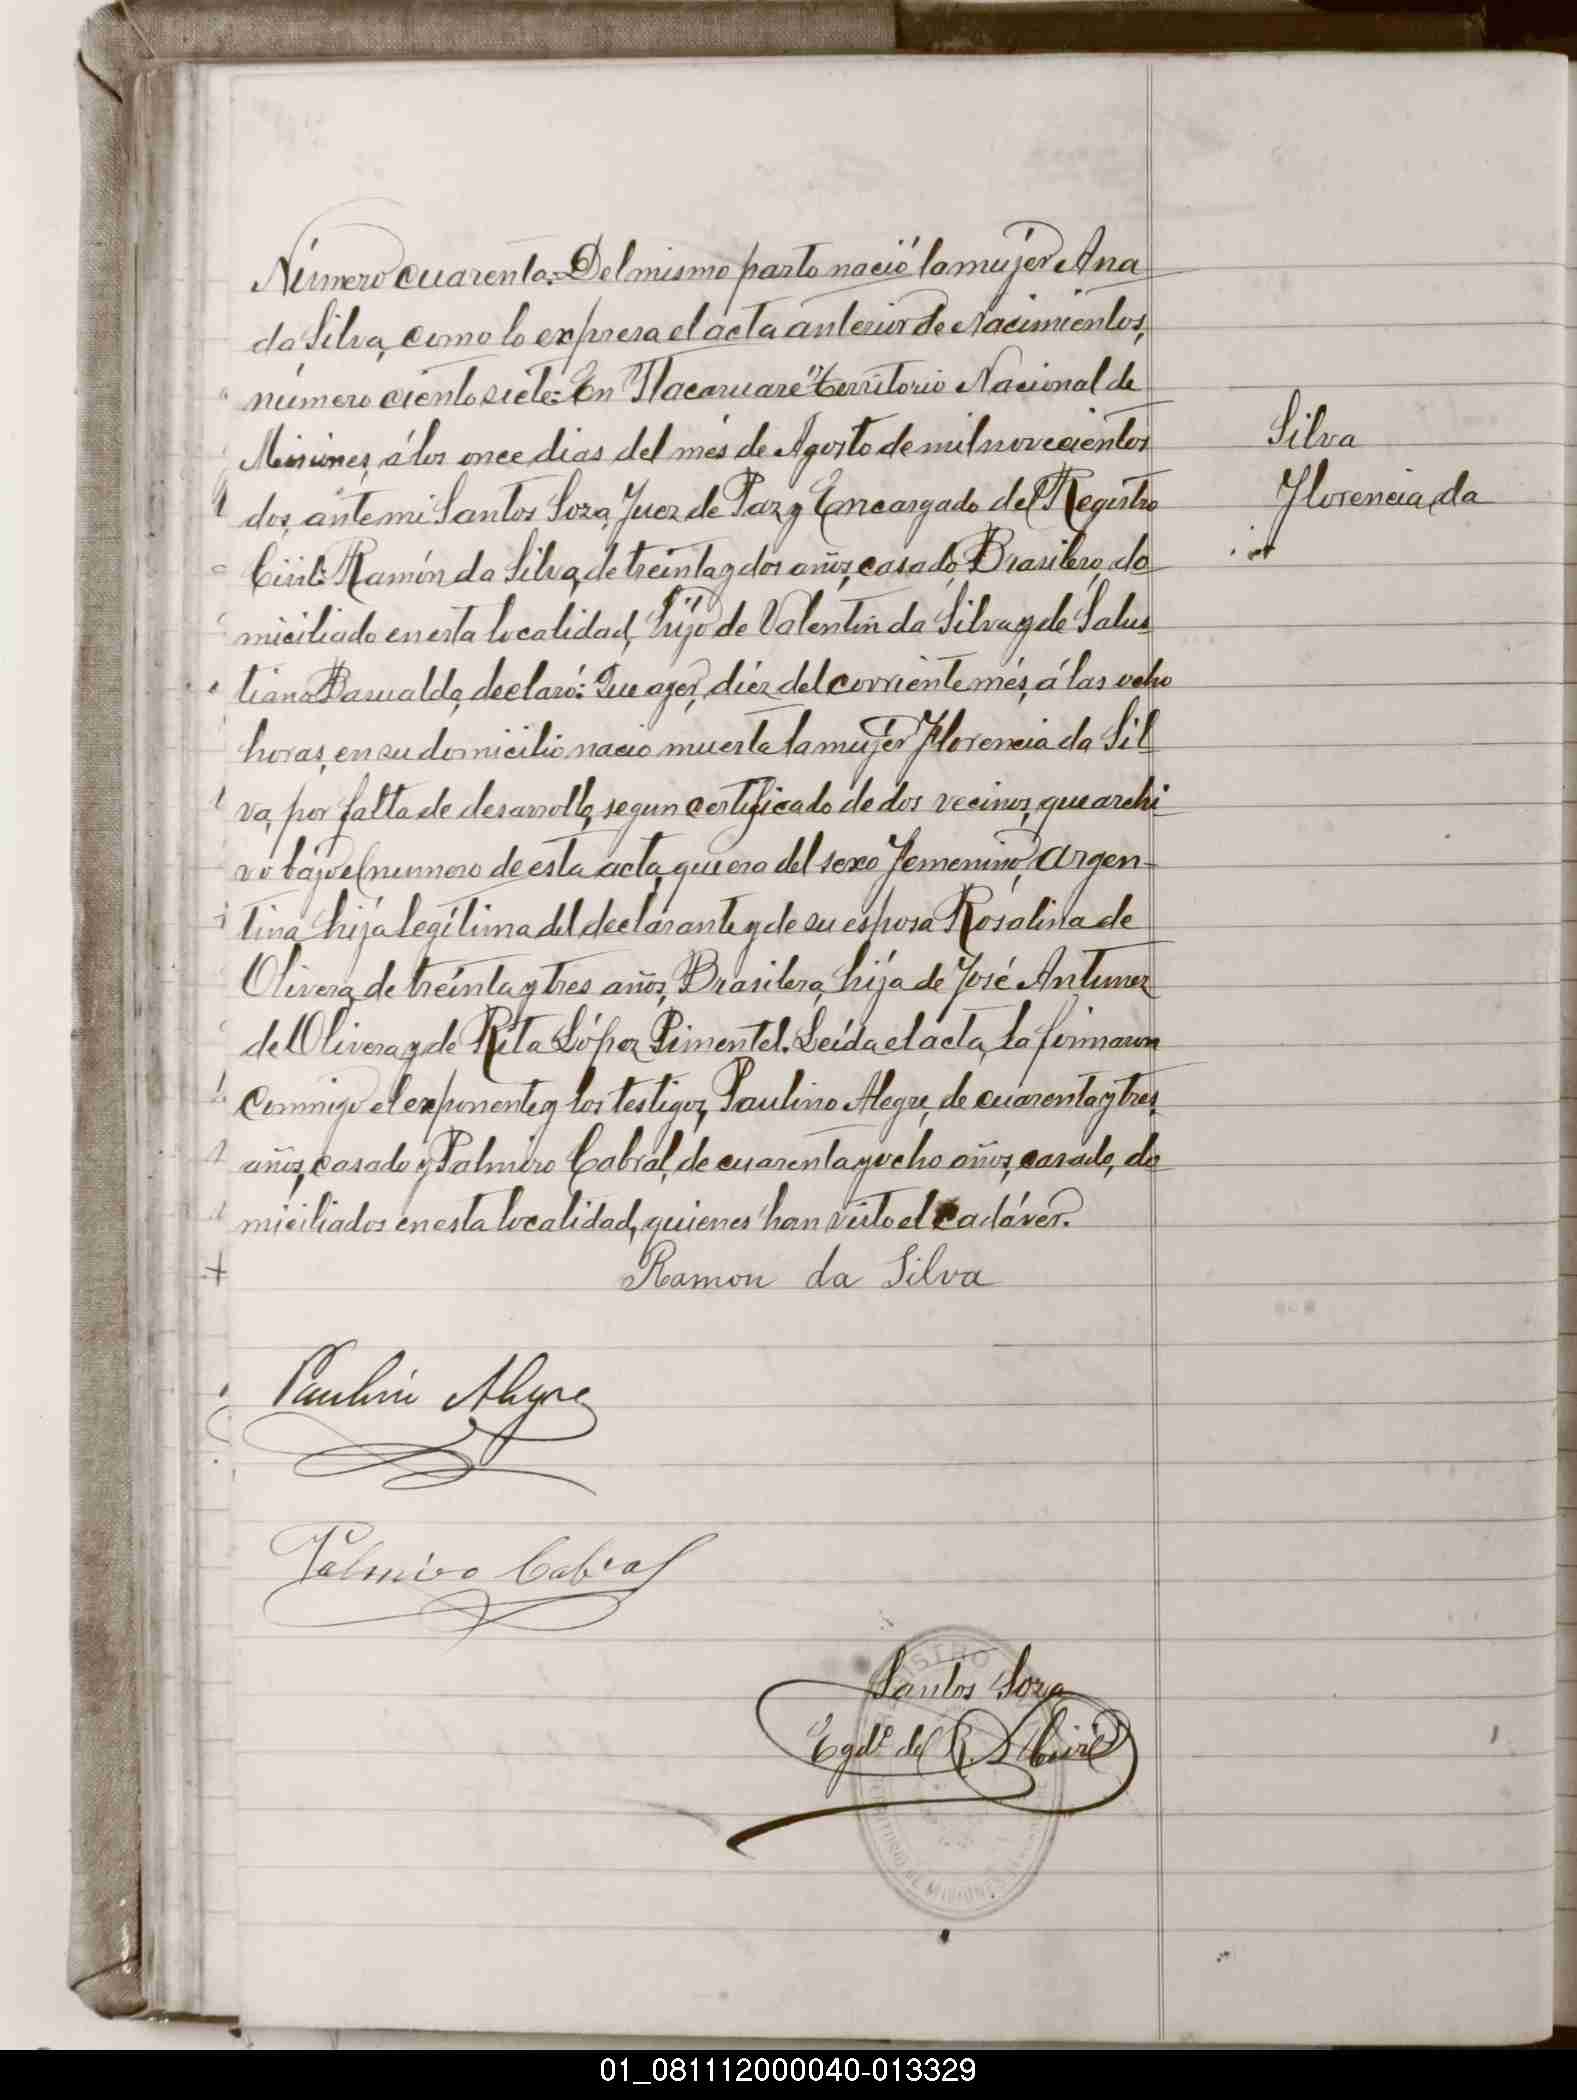 Número cuarenta.=Del mismo parto nació la mujer Ana
da Silva, como lo expresa el acta anterior de Nacimientos,
número ciento siete:=En "Tlacaruaré" territorio Nacional de
Misiones, á los once dias del més de Agosto de mil novecientos
dos, ante mi Santos Soza, Juez de Paz y Encargado del Registro
Civil: Ramón da Silva, de treinta y dos años, casado, Brasilero, do
miciliado en esta localidad, hijo de Valentin da Silva y de Salus
tiana Basualdo, declaró: Que ayer, diéz del corriente més, á las ocho
horas, en su domicilio nació muerta la mujer Florencia da Sil
va, por falta de desarrollo, segun certificado de dos vecinos, que archi
vo bajo el numero de esta acta, que era del sexo femenino, Argen-
tina hija legítima del declarante y de su esposa Rosalina de
Olivera, de treinta y tres años, Brasilera, hija de José Antunez
de Olivera y de Rita López Pimentel. Leída el acta, la firmaron
conmigo el exponente y los testigos, Paulino Alegre, de cuarenta y tres
años, casado y Palmiro Cabral, de cuarenta y ocho años, casado, do
miciliados en esta localidad, quienes han visto el cadáver.
Silva
Florencia da
Ramon da Silva
Paulino Alegre
Palmiro Cabral
Santos Soza
Egdo. del R. Civil
REGISTRO
TERRITORIO DE MISIONES
01_081112000040-013329